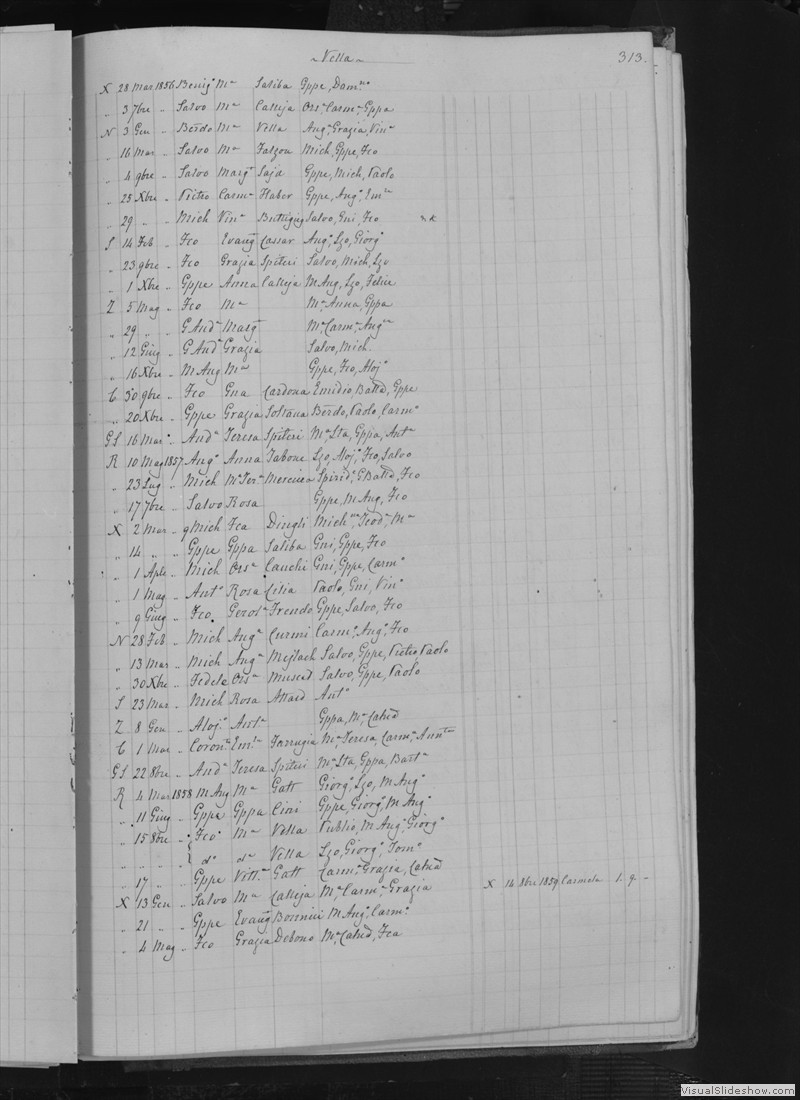 ~ Vella ~ 313.
X 28 Mar 1856 Benigo Ma Saliba Gppe, Domco
" 3 7bre " Salvo Ma Calleja Orsa, Carmo, Gppa
N 3 Gen " Berdo Ma Vella Ango, Grazia, Vino
" 16 Mar " Salvo Ma Falzon Mich, Gppe, Fco
" 4 9bre " Salvo Margta Saja Gppe, Mich, Paolo
" 25 Xbre " Pietro Carma Haber Gppe, Ango, Emla
" 29 " " Mich Vina Buttigieg Salvo, Gni, Fco
S 14 Feb " Fco Evanga Cassar Ango, Lzo, Giorgo
" 23 9bre " Fco Grazia Spiteri Salvo, Mich, Lzo
" 1 Xbre " Gppe Anna Calleja M Ang, Lzo, Felice
Z 5 Mag " Fco Ma Ma Anna, Gppa
" 29 " " G Anda Margta Ma Carma, Angna
" 12 Giug " G Anda Grazia Salvo, Mich.
" 16 Xbre " M Ang Ma Gppe, Fco, Alojo
C 30 9bre " Fco Gna Cardona Emidio, Batta, Gppe
" 20 Xbre " Gppe Grazia Soltana Berdo, Paolo, Carmo
GS 16 Mar " Anda Teresa Spiteri Ma Sta, Gppa, Anta
R 10 Mag 1857 Ango Anna Tabone Lzo, Alojo, Fco, Salvo
" 23 Lug " Mich Ma Tera Mercieca Spirido, G Batta, Fco
" 17 7bre " Salvo Rosa Gppe, M Ang, Fco
X 2 Mar " g Mich Fca Dingli Michna, Teoda, Ma
" 14 " " Gppe Gppa Saliba Gni, Gppe, Fco
" 1 Aple " Mich Orsa Cauchi Gni, Gppe, Carmo
" 1 Mag " Anto Rosa Cilia Paolo, Gni, Vino
" 9 Giug " Fco Gerosa Frendo Gppe, Salvo, Fco
N 28 Feb " Mich Anga Curmi Carmo, Ango, Fco
" 13 Mar " Mich Anga Mejlach Salvo, Gppe, Pietro Paolo
" 30 Xbre " Fedele Orsa Muscad Salvo, Gppe, Paolo
S 23 Mar " Mich Rosa Attard Anto
Z 8 Gen " Alojo Anta Gppa, Ma Catna
C 1 Mar " Corono Emla Farrugia Ma Teresa, Carma, Annta
GS 22 8bre " Anda Teresa Spiteri Ma Sta, Gppa, Batta
R 4 Mar 1858 M Ang Ma Gatt Giorgo, Lzo, M Ango
" 11 Giug " Gppe Gppa Cini Gppe, Giorgo, M Ango
" 15 8bre " Fco Ma Vella Publio, M Ango, Giorgo
" " " " do da Vella Lzo, Giorgo, Tomo
" 17 " " Gppe Vitta Gatt Carma, Grazia, Catna
X 13 Gen " Salvo Ma Calleja Ma Carma, Grazia X 14 8bre 1859, Carmela 1. 9. -
" 21 " " Gppe Evanga Bonnici M Ango, Carmo
" 4 Mag " Fco Grazia Debono Ma Catna, Fca
VisualSlideshow.com